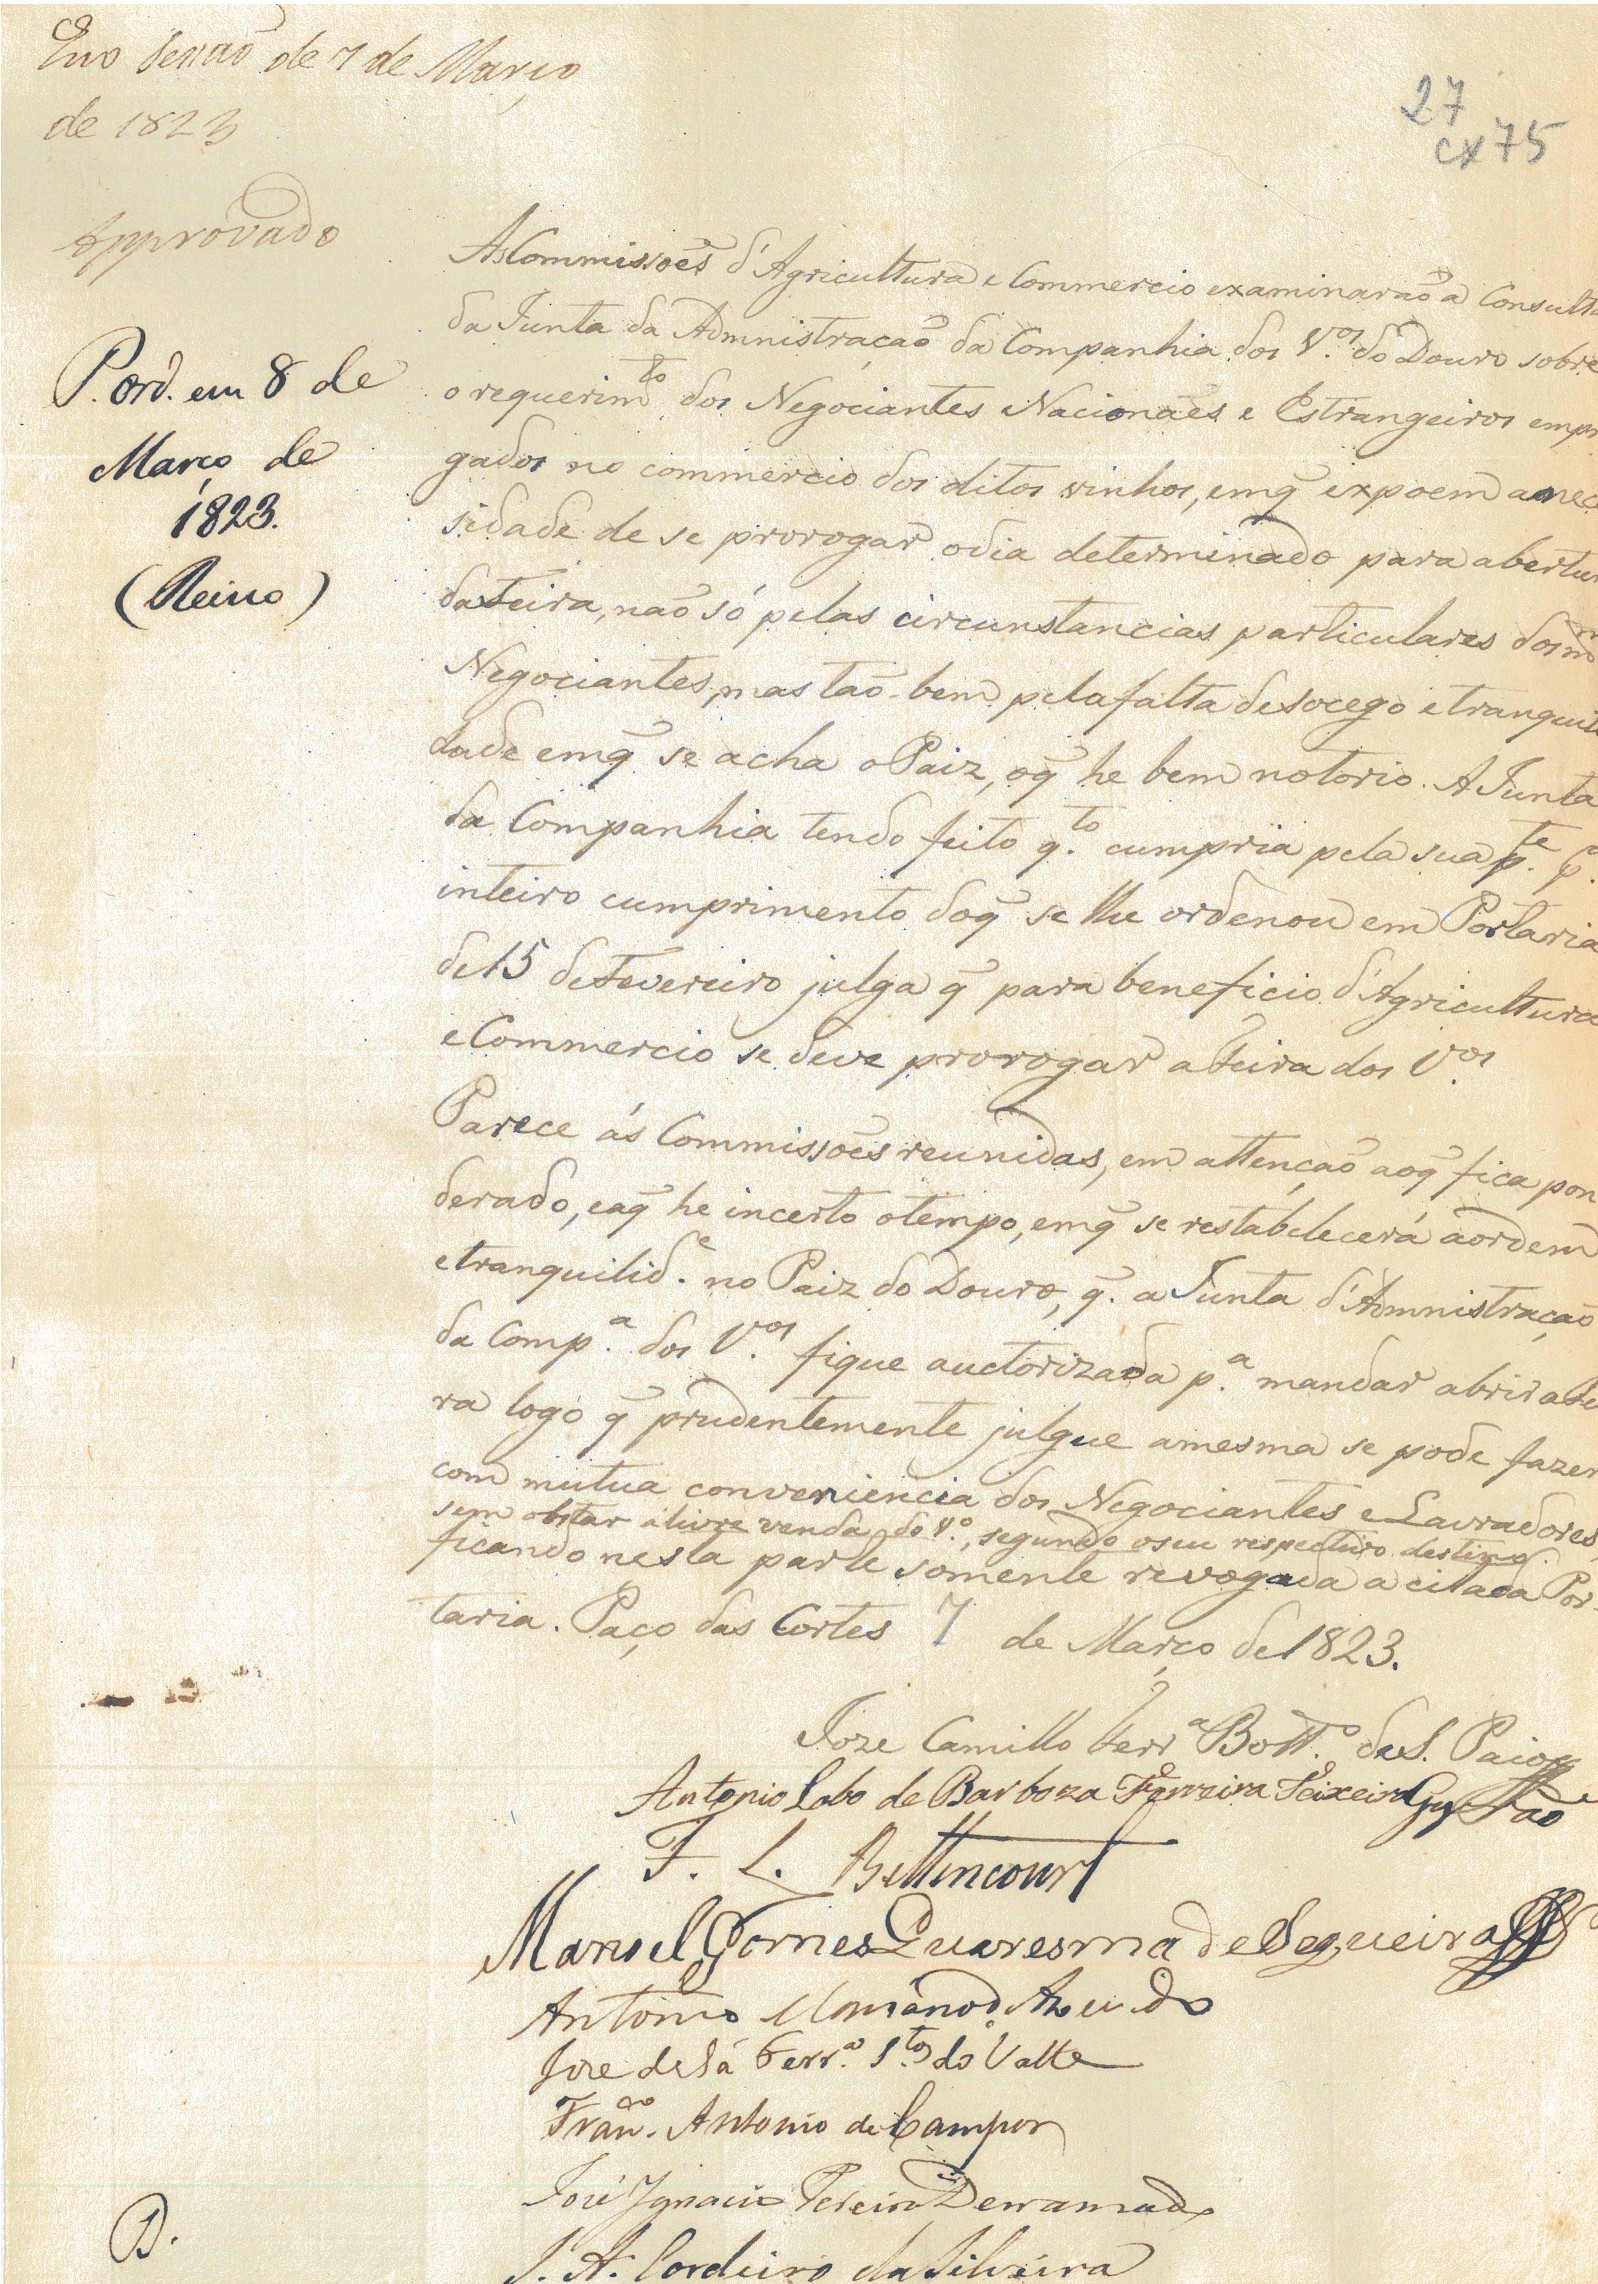 Em Sessaõ de 7 de Março
de 1823
Approvado
27
cx 75
P. Ord. em 8 de
Março de
1823.
(Reino)
As Commissoẽs d'Agricultura e Commercio examinaraõ a Consulta
da Junta da Admnistraçaõ da Companhia dos V.ᵒˢ do Douro sobre
o requerim.ᵗᵒ dos Negociantes Nacionaes e Estrangeiros empr
gados no commercio dos ditos vinhos, em q̃ expoem a nece
sidade de se prorogar o dia determinado para abertur
da Feira, naõ só pelas circunstancias particulares dos m
Negociantes, mas taõ-bem pela falta de socego e tranquili
dade em q̃ se acha o Paiz, o q̃ he bem notorio. A Junta
da Companhia tendo feito q.ᵗᵒ cumpria pela sua p.ᵗᵉ p.
inteiro cumprimento do q̃ se lhe ordenou em Portaria
de 15 de Fevereiro julga q̃ para beneficio d'Agricultura
e Commercio se deve prorogar a Feira dos V.ᵒˢ
Parece ás Commissoẽs reunidas, em attençaõ ao q̃ fica pon
derado, e a q̃ he incerto o tempo, em q̃ se restabelecerá a ordem
e tranquilid.ᵉ no Paiz do Douro, q. a Junta d'Admnistraçaõ
da Comp.ᵃ dos V.ᵒˢ fique auctorizada p.ᵃ mandar abrir a Fei
ra logo q̃ prudentemente julgue a mesma se pode fazer
com mutua conveniencia dos Negociantes e Lavradores,
sem obstar á livre venda do V.ᵒ, segundo o seu respectivo destino.
ficando nesta parte somente revogada a citada Por-
taria. Paço das Cortes 7 de Março de 1823.
Joze Camillo Ferr.ᵃ Bott.ᵒ de S. Paio
Antonio Lobo de Barboza Ferreira Teixeira Gyraõ
F. L. Bettencourt
Manoel Gomes Quaresma de Sequeira
Antonio d'Azevedo
Joze de Sá Ferr.ᵃ S.ᵗᵒˢ do Valle
Fran.ᶜᵒ Antonio de Campos
José Ignacio Pereira Derramado
J. A. Cordeiro da Silveira
D.